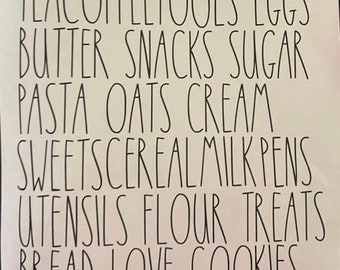 TEA COFFEE TOOLS EGGS
BUTTER SNACKS SUGAR
PASTA OATS CREAM
SWEETS CEREAL MILK PENS
UTENSILS FLOUR TREATS
BREAD LOVE COOKIES